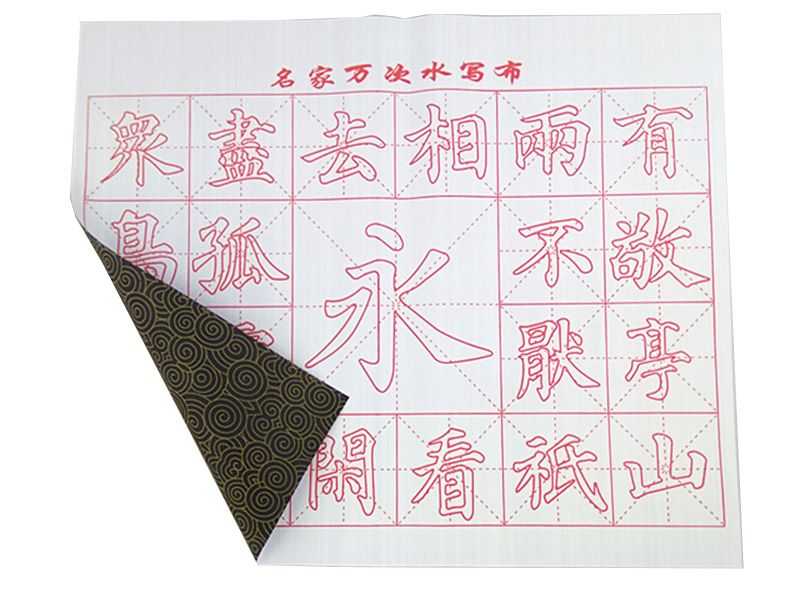 名家万次水写布
衆盡去相兩有
鳥孤永不敬
猒亭
閑看祇山